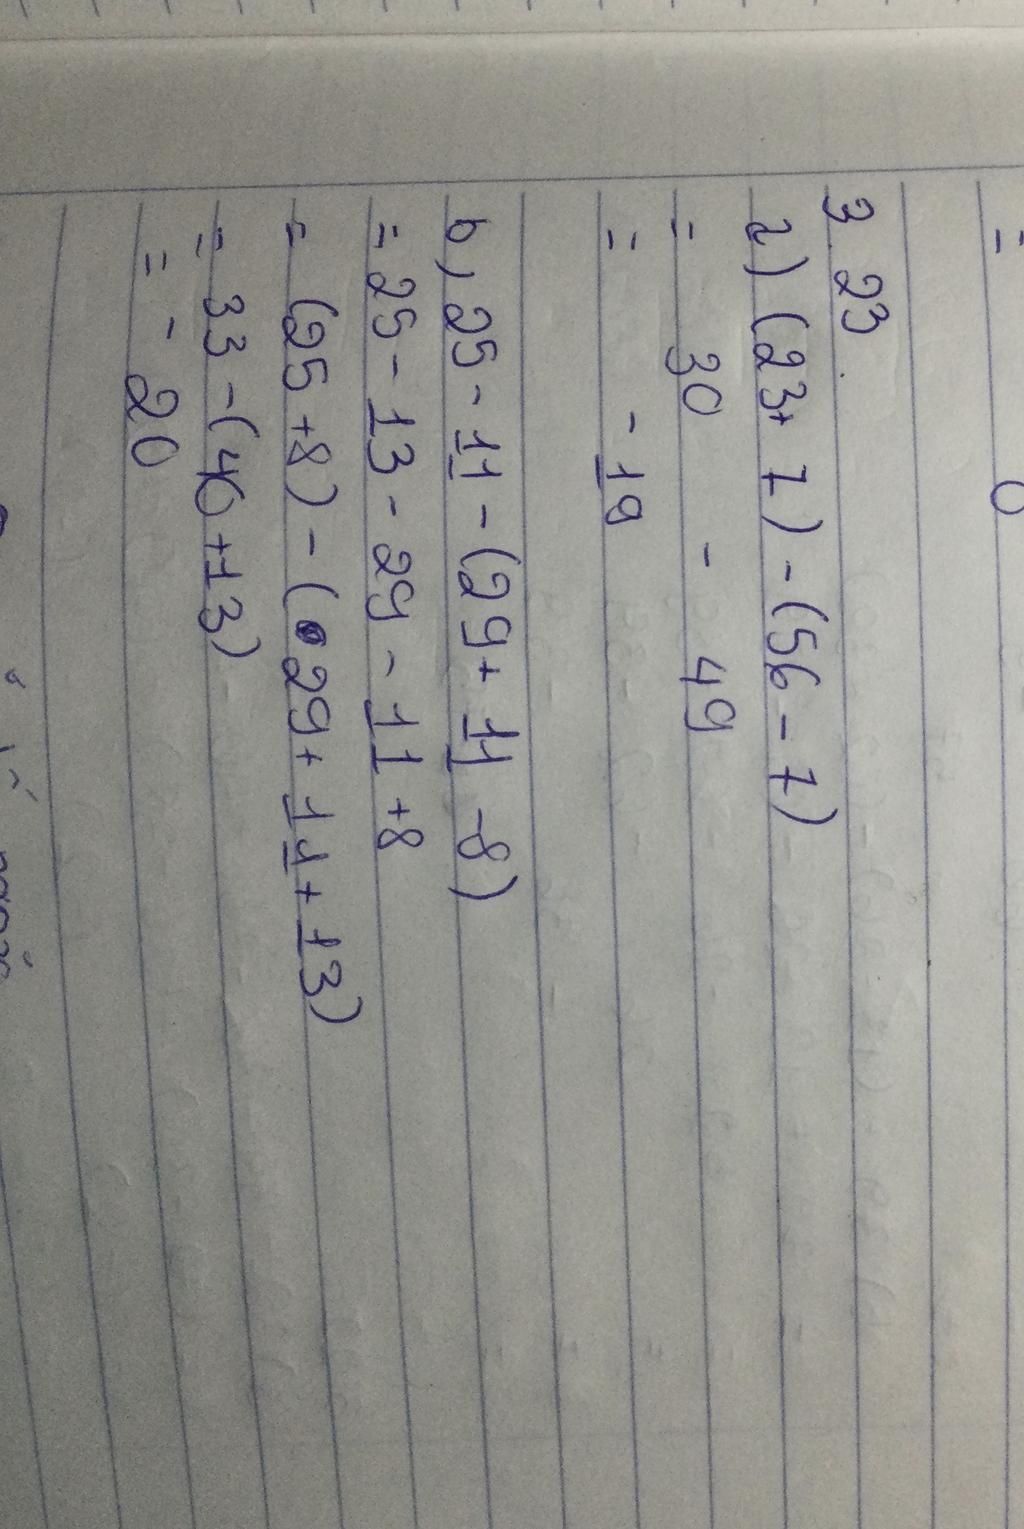 =
0
3. 23.
a) (23+ 7) - (56 - 7)
= 30 - 49
= - 19
b, 25 - 11 - (29 + 11 - 8)
= 25 - 13 - 29 - 11 + 8
= (25 + 8) - (29 + 11 + 13)
= 33 - (40 + 13)
= - 20